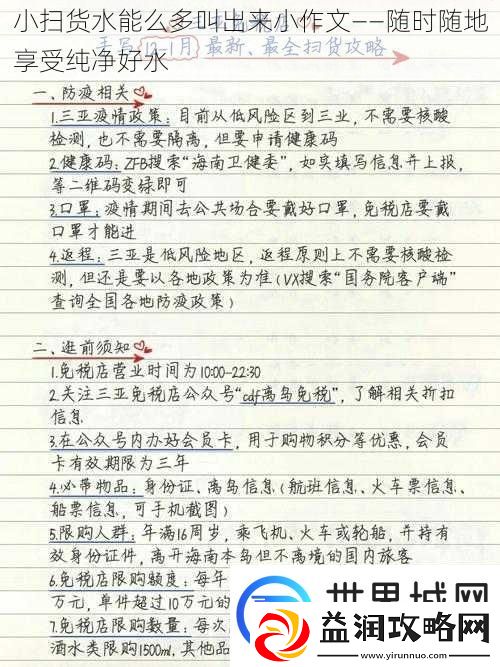 小扫货水能么多叫出来小作文——随时随地
享受纯净好水
手写12-1月最新、最全扫货攻略
一、防疫相关
1.三亚疫情政策：目前从低风险区到三亚，不需要核酸
检测，也不需要隔离，但要申请健康码
2.健康码：ZFB搜索“海南卫健委”，如实填写信息并上报，
等二维码变绿即可
3.口罩：疫情期间去公共场合要戴好口罩，免税店要戴
口罩才能进
4.返程：三亚是低风险地区，返程原则上不需要核酸检
测，但还是要以各地政策为准（VX搜索“国务院客户端”
查询全国各地防疫政策）
二、逛前须知
1.免税店营业时间为10:00-22:30
2.关注三亚免税店公众号“cdf离岛免税”，了解相关折扣
信息
3.在公众号内办好会员卡，用于购物积分等优惠，会员
卡有效期限为三年
4.必带物品：身份证、离岛信息（航班信息、火车票信息、
船票信息，可手机截图）
5.限购人群：年满16周岁，乘飞机、火车或轮船，并持有
效身份证件，离开海南本岛但不离境的国内旅客
6.免税店限购额度：每年
万元，单件超过10万元的
7.免税店限购数量：每次
酒水类限购1500ml，其他品
世界城网
益润攻略网
www.yirunnuo.com